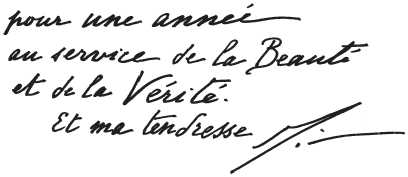 pour une année
au service de la Beauté
et de la Vérité.
Et ma tendresse